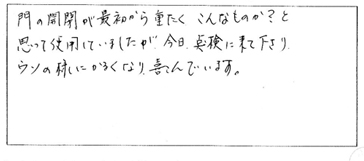 門の開閉が最初から重たく こんなものか?と
思って使用していましたが 今日、点検に来て下さり、
ウソの様にかるくなり、喜んでいます。